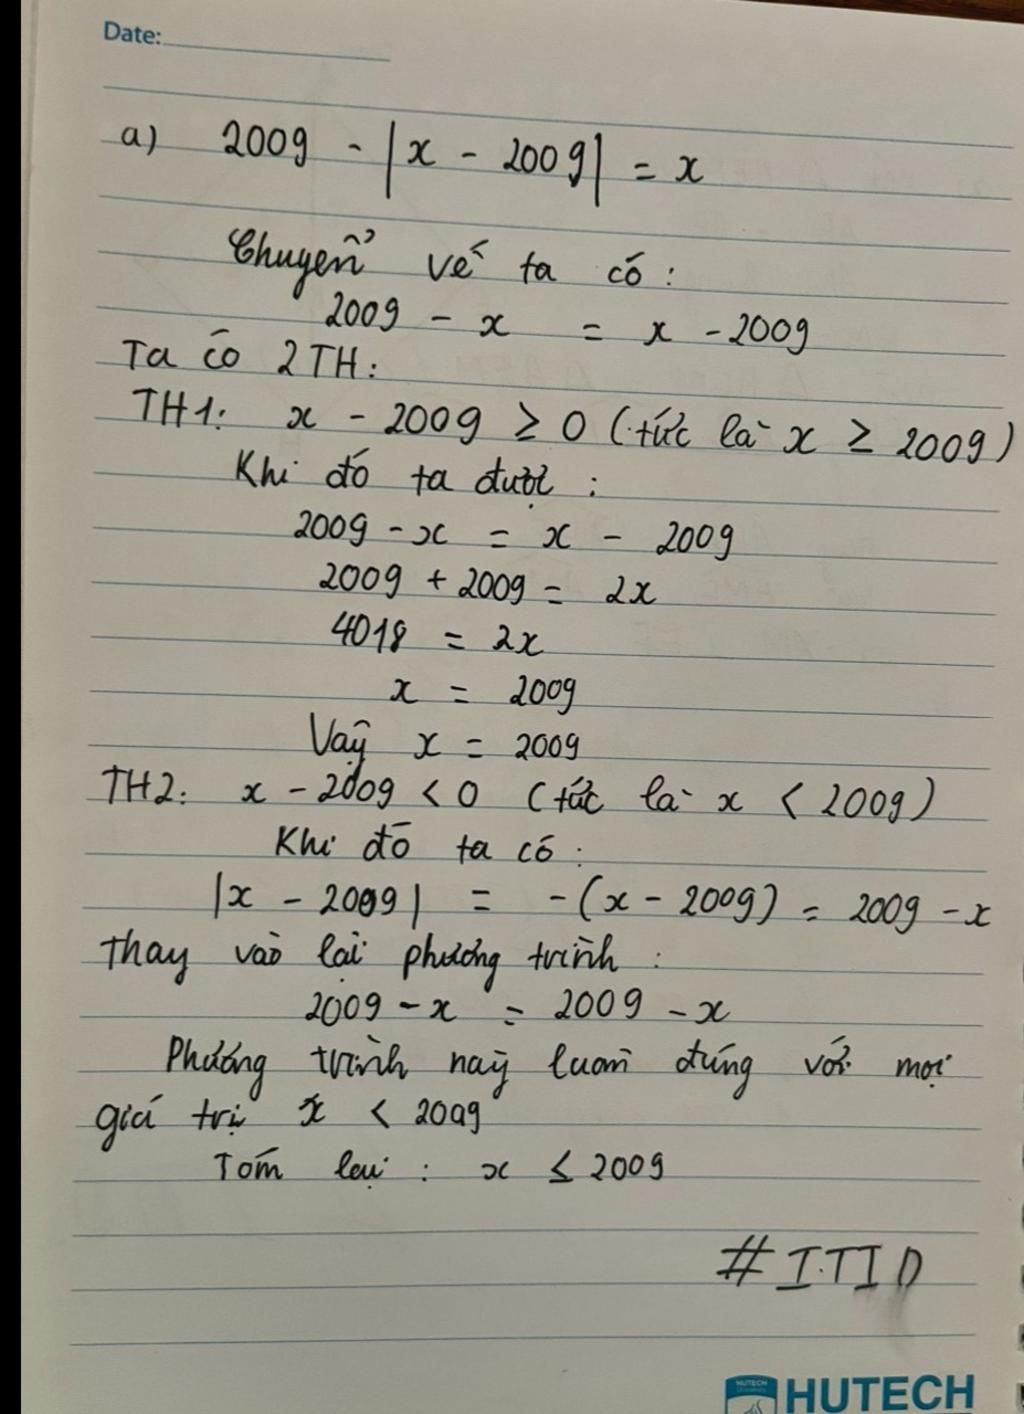 Date:
a) 2009 - |x - 2009| = x
Chuyển vế ta có :
2009 - x = x - 2009
Ta có 2 TH:
TH1: x - 2009 ≥ 0 (tức là x ≥ 2009)
Khi đó ta được :
2009 - x = x - 2009
2009 + 2009 = 2x
4018 = 2x
x = 2009
Vậy x = 2009
TH2: x - 2009 < 0 (tức là x < 2009)
Khi đó ta có :
|x - 2009| = -(x - 2009) = 2009 - x
Thay vào lại phương trình :
2009 - x = 2009 - x
Phương trình này luôn đúng với mọi
giá trị x < 2009
Tóm lại : x ≤ 2009
#I.TID
HUTECH